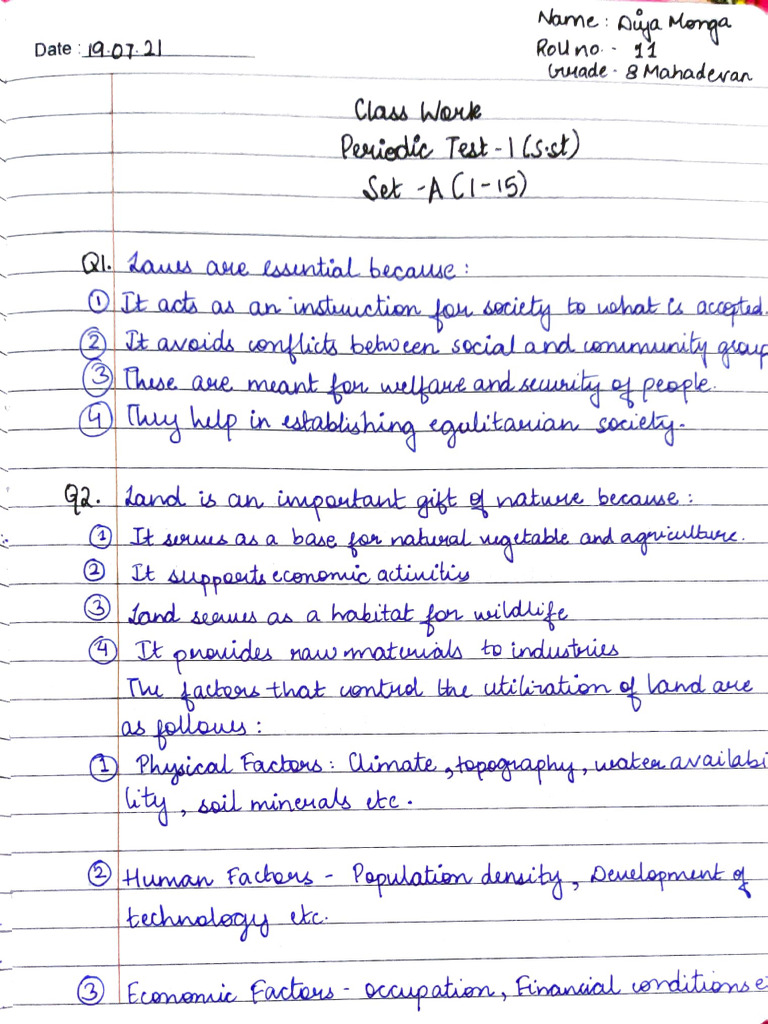 Name: Diya Monga
Date : 19.07.21
Roll no. - 11
Grade - 8 Mahadevan
Class Work
Periodic Test - 1 (S.st)
Set - A (1-15)
Q1. Laws are essential because:
① It acts as an instruction for society to what is accepted.
② It avoids conflicts between social and community group
③ These are meant for welfare and security of people.
④ They help in establishing egulitarian society.
Q2. Land is an important gift of nature because:
① It serves as a base for natural vegetable and agriculture.
② It supports economic activities
③ Land serves as a habitat for wildlife
④ It provides raw materials to industries
The factors that control the utilization of land are
as follows:
① Physical Factors: Climate, topography, water availabi
lity, soil minerals etc.
② Human Factors - Population density, Development of
technology etc.
③ Economic Factors - occupation, Financial conditions e